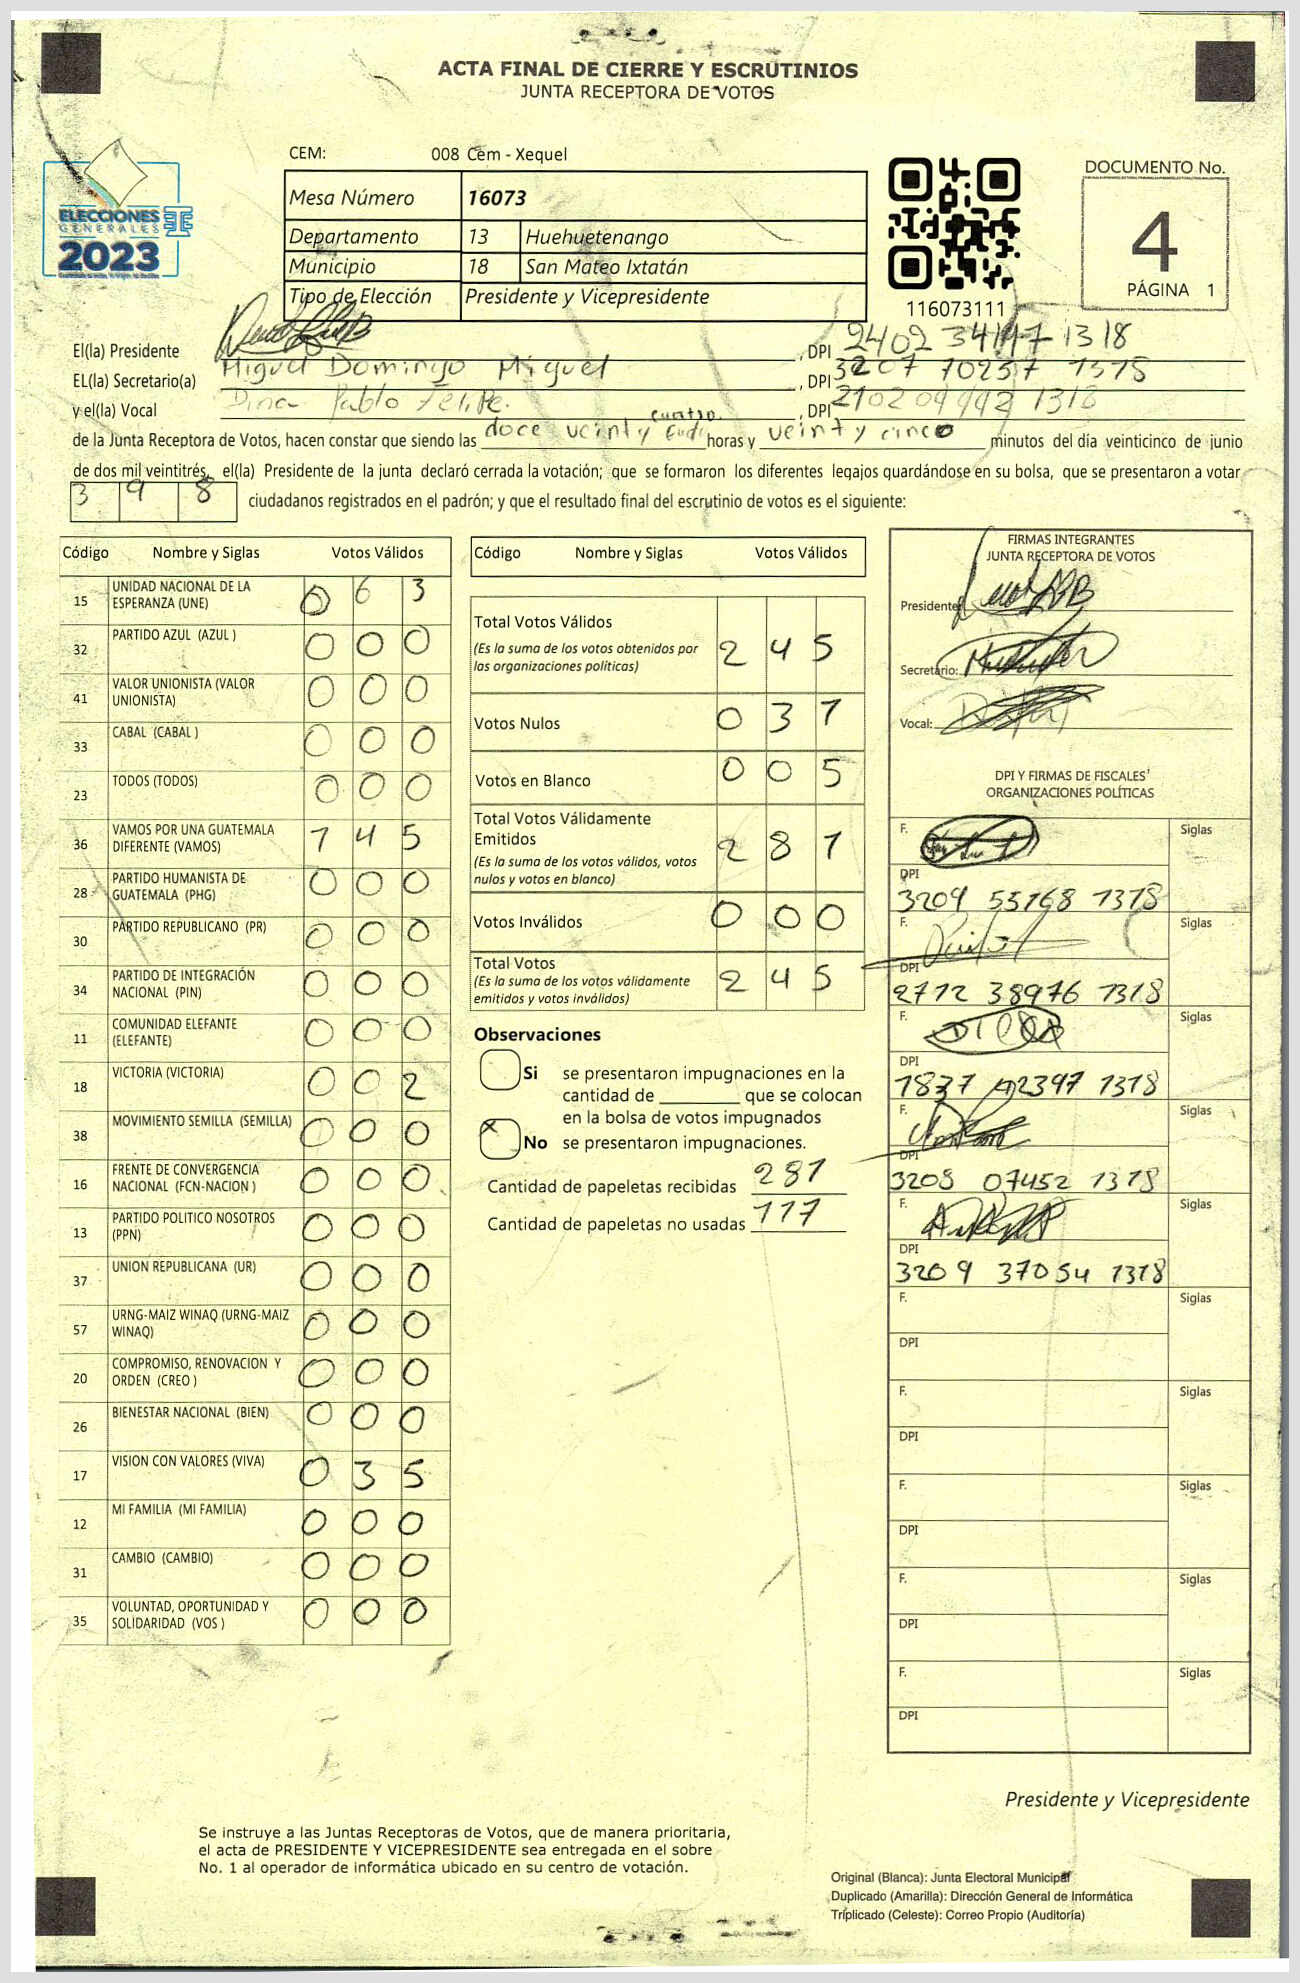 ACTA FINAL DE CIERRE Y ESCRUTINIOS
JUNTA RECEPTORA DE VOTOS
CEM: 008 Cem - Xequel
ELECCIONES
GENERALES
2023
Mesa Número 16073
Departamento 13 Huehuetenango
Municipio 18 San Mateo Ixtatán
Tipo de Elección Presidente y Vicepresidente
116073111
DOCUMENTO No.
4
PÁGINA 1
El(la) Presidente , DPI 2402 34147 1318
EL(la) Secretario(a) Miguel Domingo Miguel , DPI 3207 70257 1318
y el(la) Vocal Dina Pablo Felipe. , DPI 2102 1318
cuatro.
de la Junta Receptora de Votos, hacen constar que siendo las doce veinty horas y veinty cinco minutos del día veinticinco de junio
de dos mil veintitrés, el(la) Presidente de la junta declaró cerrada la votación; que se formaron los diferentes legajos guardándose en su bolsa, que se presentaron a votar
3 9 8 ciudadanos registrados en el padrón; y que el resultado final del escrutinio de votos es el siguiente:
Código Nombre y Siglas Votos Válidos
15 UNIDAD NACIONAL DE LA ESPERANZA (UNE) 0 6 3
32 PARTIDO AZUL (AZUL ) 0 0 0
41 VALOR UNIONISTA (VALOR UNIONISTA) 0 0 0
33 CABAL (CABAL ) 0 0 0
23 TODOS (TODOS) 0 0 0
36 VAMOS POR UNA GUATEMALA DIFERENTE (VAMOS) 1 4 5
28 PARTIDO HUMANISTA DE GUATEMALA (PHG) 0 0 0
30 PARTIDO REPUBLICANO (PR) 0 0 0
34 PARTIDO DE INTEGRACIÓN NACIONAL (PIN) 0 0 0
11 COMUNIDAD ELEFANTE (ELEFANTE) 0 0 0
18 VICTORIA (VICTORIA) 0 0 2
38 MOVIMIENTO SEMILLA (SEMILLA) 0 0 0
16 FRENTE DE CONVERGENCIA NACIONAL (FCN-NACION ) 0 0 0
13 PARTIDO POLITICO NOSOTROS (PPN) 0 0 0
37 UNION REPUBLICANA (UR) 0 0 0
57 URNG-MAIZ WINAQ (URNG-MAIZ WINAQ) 0 0 0
20 COMPROMISO, RENOVACION Y ORDEN (CREO ) 0 0 0
26 BIENESTAR NACIONAL (BIEN) 0 0 0
17 VISION CON VALORES (VIVA) 0 3 5
12 MI FAMILIA (MI FAMILIA) 0 0 0
31 CAMBIO (CAMBIO) 0 0 0
35 VOLUNTAD, OPORTUNIDAD Y SOLIDARIDAD (VOS ) 0 0 0
Código Nombre y Siglas Votos Válidos
Total Votos Válidos 2 4 5
(Es la suma de los votos obtenidos por
las organizaciones políticas)
Votos Nulos 0 3 1
Votos en Blanco 0 0 5
Total Votos Válidamente
Emitidos 2 8 1
(Es la suma de los votos válidos, votos
nulos y votos en blanco)
Votos Inválidos 0 0 0
Total Votos 2 4 5
(Es la suma de los votos válidamente
emitidos y votos inválidos)
Observaciones
Si se presentaron impugnaciones en la
cantidad de ________ que se colocan
en la bolsa de votos impugnados
X No se presentaron impugnaciones.
Cantidad de papeletas recibidas 281
Cantidad de papeletas no usadas 117
FIRMAS INTEGRANTES
JUNTA RECEPTORA DE VOTOS
Presidente:
Secretario:
Vocal:
DPI Y FIRMAS DE FISCALES
ORGANIZACIONES POLÍTICAS
F. Siglas
DPI
3209 55168 1318
F. Siglas
DPI
2712 38976 1318
F. Siglas
DPI
1837 1318
F. Siglas
DPI
3208 07452 1318
F. Siglas
DPI
3209 37054 1318
F. Siglas
DPI
F. Siglas
DPI
F. Siglas
DPI
F. Siglas
DPI
F. Siglas
DPI
Presidente y Vicepresidente
Se instruye a las Juntas Receptoras de Votos, que de manera prioritaria,
el acta de PRESIDENTE Y VICEPRESIDENTE sea entregada en el sobre
No. 1 al operador de informática ubicado en su centro de votación.
Original (Blanca): Junta Electoral Municipal
Duplicado (Amarilla): Dirección General de Informática
Triplicado (Celeste): Correo Propio (Auditoría)